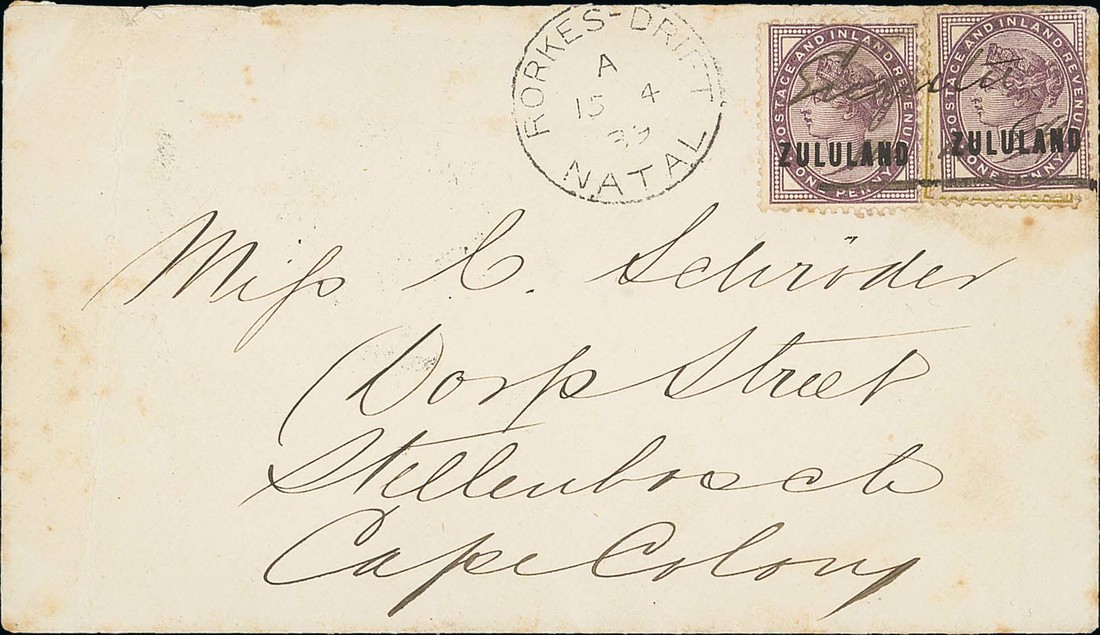 RORKES-DRIFT
A
15 4
NATAL
POSTAGE AND INLAND REVENUE
ZULULAND
ONE PENNY
POSTAGE AND INLAND REVENUE
ZULULAND
ONE PENNY
Miſs C. Schröder
Dorp Street
Stellenbosch
Cape Colony